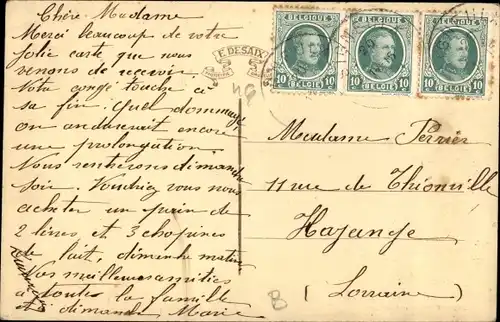 Chère Madame
Merci beaucoup de votre
jolie carte que nous
venons de recevoir.
Votre congé touche à
sa fin. Quel dommage,
on aurait encore
une prolongation.
Nous rentrerons dimanche
soir. Voudriez vous nous
acheter un pain de
2 livres et 3 chopines
de lait, dimanche matin.
Nos meilleures amitiés
à toutes la famille
et à dimanche Marie
E. DESAIX
BELGIQUE
10 10
BELGIË
BELGIQUE
10 10
BELGIË
BELGIQUE
10 10
BELGIË
Madame Perrier
11 rue de Thionville
Hayange
(Lorraine)
B